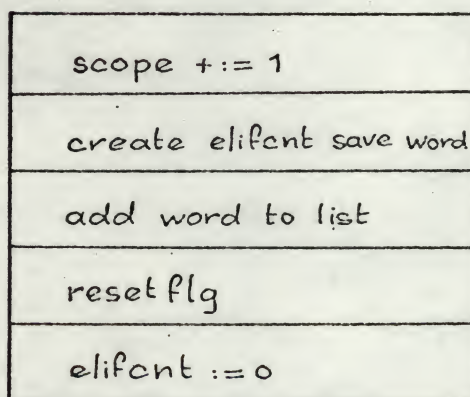 scope + := 1
create elifcnt save word
add word to list
reset flg
elifcnt := 0